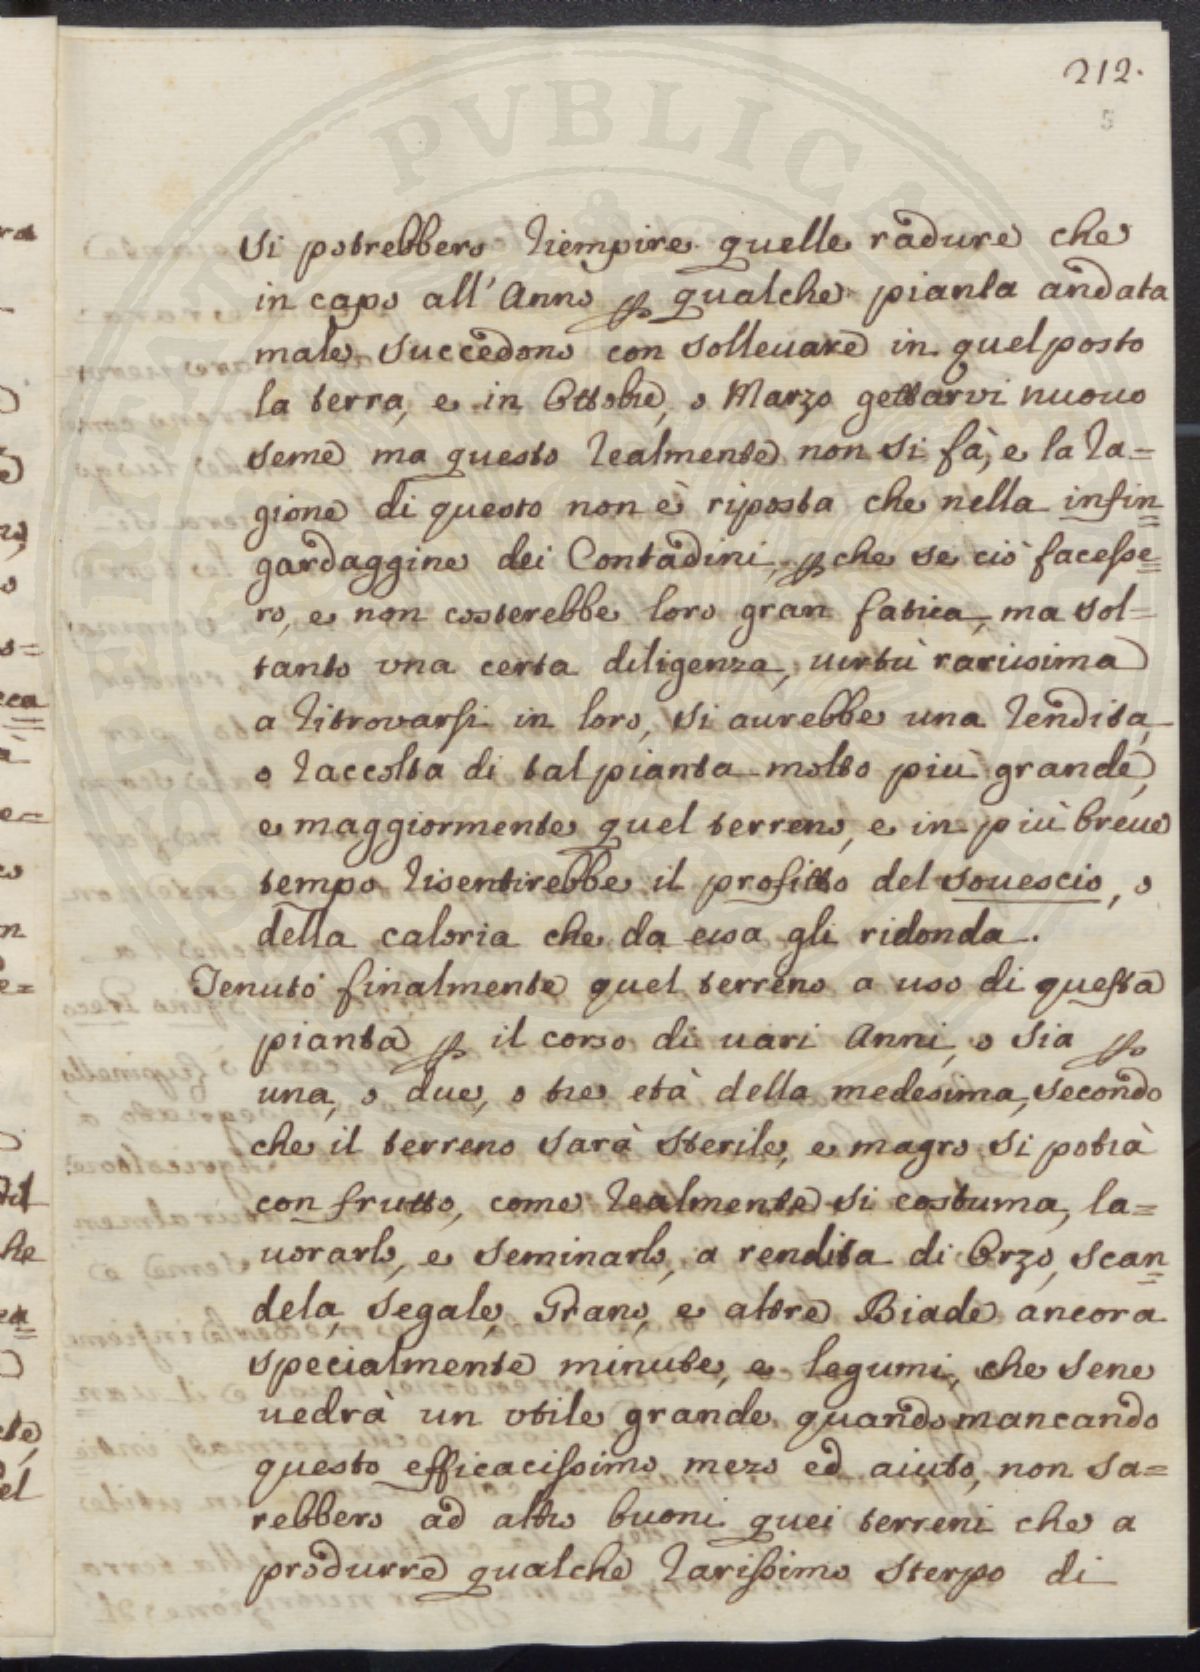 212.
5
PVBLICAE
Si potrebbero riempire quelle radure che
in capo all' Anno p qualche pianta andata
male succedono con solleuare in quel posto
la terra, e in Ottobre, o Marzo gettarvi nuouo
seme ma questo realmente non si fà, e la ra=
gione di questo non è riposta che nella infin=
gardaggine dei Contadini, pche se ciò facesse=
ro, e non costerebbe loro gran fatica, ma sol=
tanto vna certa diligenza, uirtù rarissima
a ritrovarsi in loro, si aurebbe una rendita,
o raccolta di tal pianta molto più grande,
e maggiormente quel terreno, e in più breue
tempo risentirebbe il profitto del souescio, o
della caloria che da essa gli ridonda.
Tenuto finalmente quel terreno a uso di questa
pianta p il corso di uari Anni, o sia p
una, o due, o tre età della medesima, secondo
che il terreno sarà sterile, e magro si potrà
con frutto, come realmente si costuma, la=
uorarlo, e seminarlo, a rendita di Orzo, scan=
dela, segale, Grano, e altre Biade ancora
specialmente minute, e legumi, che sene
uedrà un vtile grande quando mancando
questo efficacissimo mezo ed aiuto, non sa=
rebbero ad altro buoni quei terreni che a
produrre qualche rarissimo sterpo di